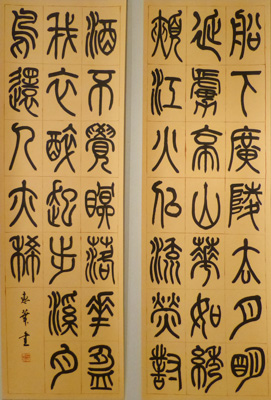 船下廣陵去月明
征虜亭山華如繡
頰江火似流螢對
酒不覺瞑落華盈
我衣醉起步溪月
鳥還人亦稀